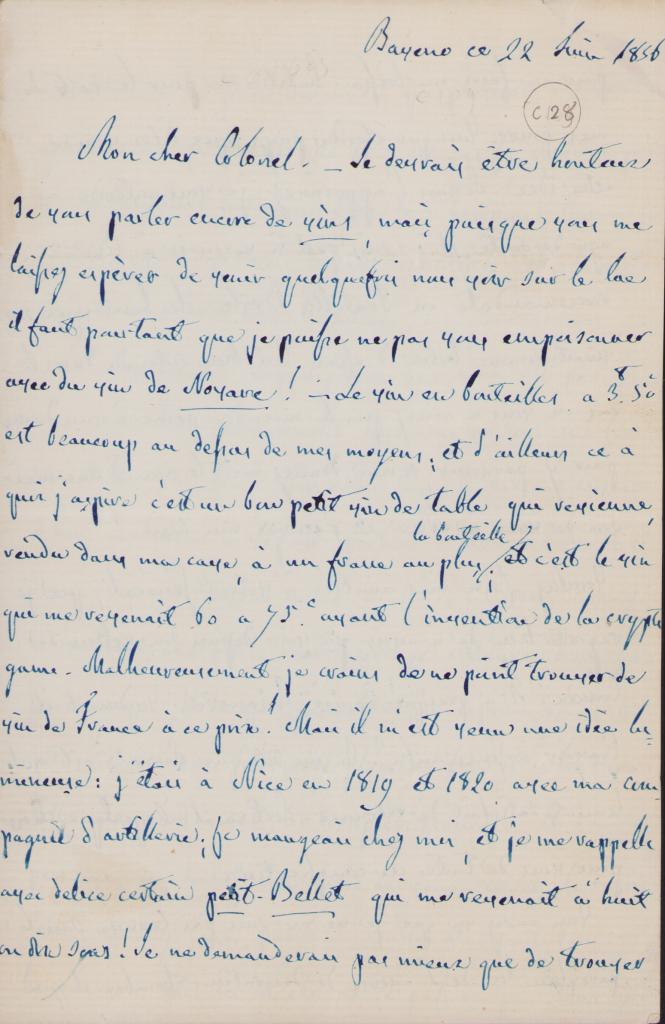 Baveno ce 22 Juin 1856
C 128
Mon cher Colonel. – Je devrais être honteux
de vous parler encore de vins, mais puisque vous me
laissez espérer de venir quelquefois nous voir sur le lac
il faut pourtant que je puisse ne pas vous empoisonner
avec du vin de Novare! – Le vin en bouteilles a 3.f 50c
est beaucoup au dessus de mes moyens, et d'ailleurs ce à
quoi j'aspire c'est un bon petit vin de table qui revienne,
vendu dans ma cave, à un franc au plus la bouteille, et c'est le vin
qui me revenait 60 a 75.c avant l'invention de la crypto
game. Malheureusement je crains de ne point trouver de
vin de France à ce prix! Mais il m'est venu une idée lu=
mineuse: j'étois à Nice en 1819 et 1820 avec ma com
pagnie d'artillerie; je mangeais chez moi, et je me rappelle
avec delice certain petit-Bellet qui me revenait à huit
ou dix sous! Je ne demanderais pas mieux que de trouver